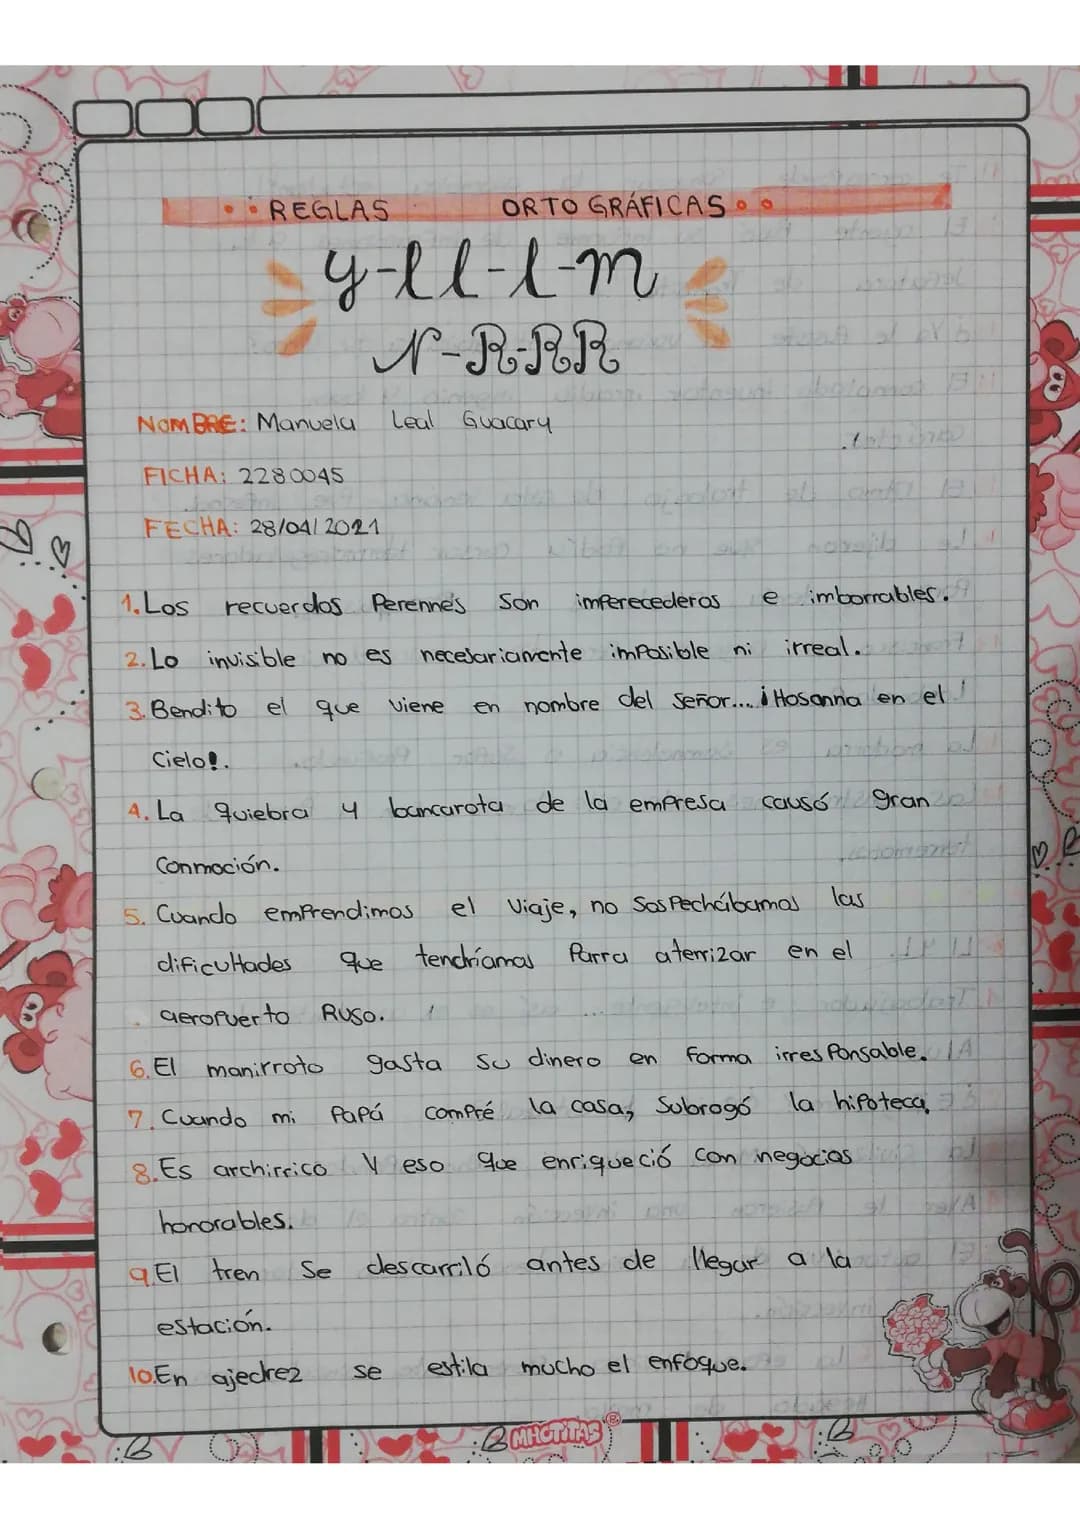 REGLAS ORTOGRÁFICAS
y-ll-l-m
N-R-RR
NOMBRE: Manuela Leal Guacary
FICHA: 2280045
FECHA: 28/04/2021
1. Los recuerdos Perennes son imperecederos e imborrables.
2. Lo invisible no es necesariamente imposible ni irreal.
3. Bendito el que viene en nombre del señor... ¡Hosanna en el
Cielo!.
4. La quiebra y bancarota de la empresa causó gran
Conmoción.
5. Cuando emprendimos el viaje, no sospechábamos las
dificultades que tendríamos Parra aterrizar en el
aeropuerto Ruso.
6. El manirroto gasta su dinero en forma irresponsable.
7. Cuando mi Papá compré la casa, Subrogó la hipoteca.
8. Es archirrico Y eso que enriqueció con negocios
honorables.
9. El tren se descarriló antes de llegar a la
estación.
10. En ajedrez se estila mucho el enfoque.
MACTITAS®